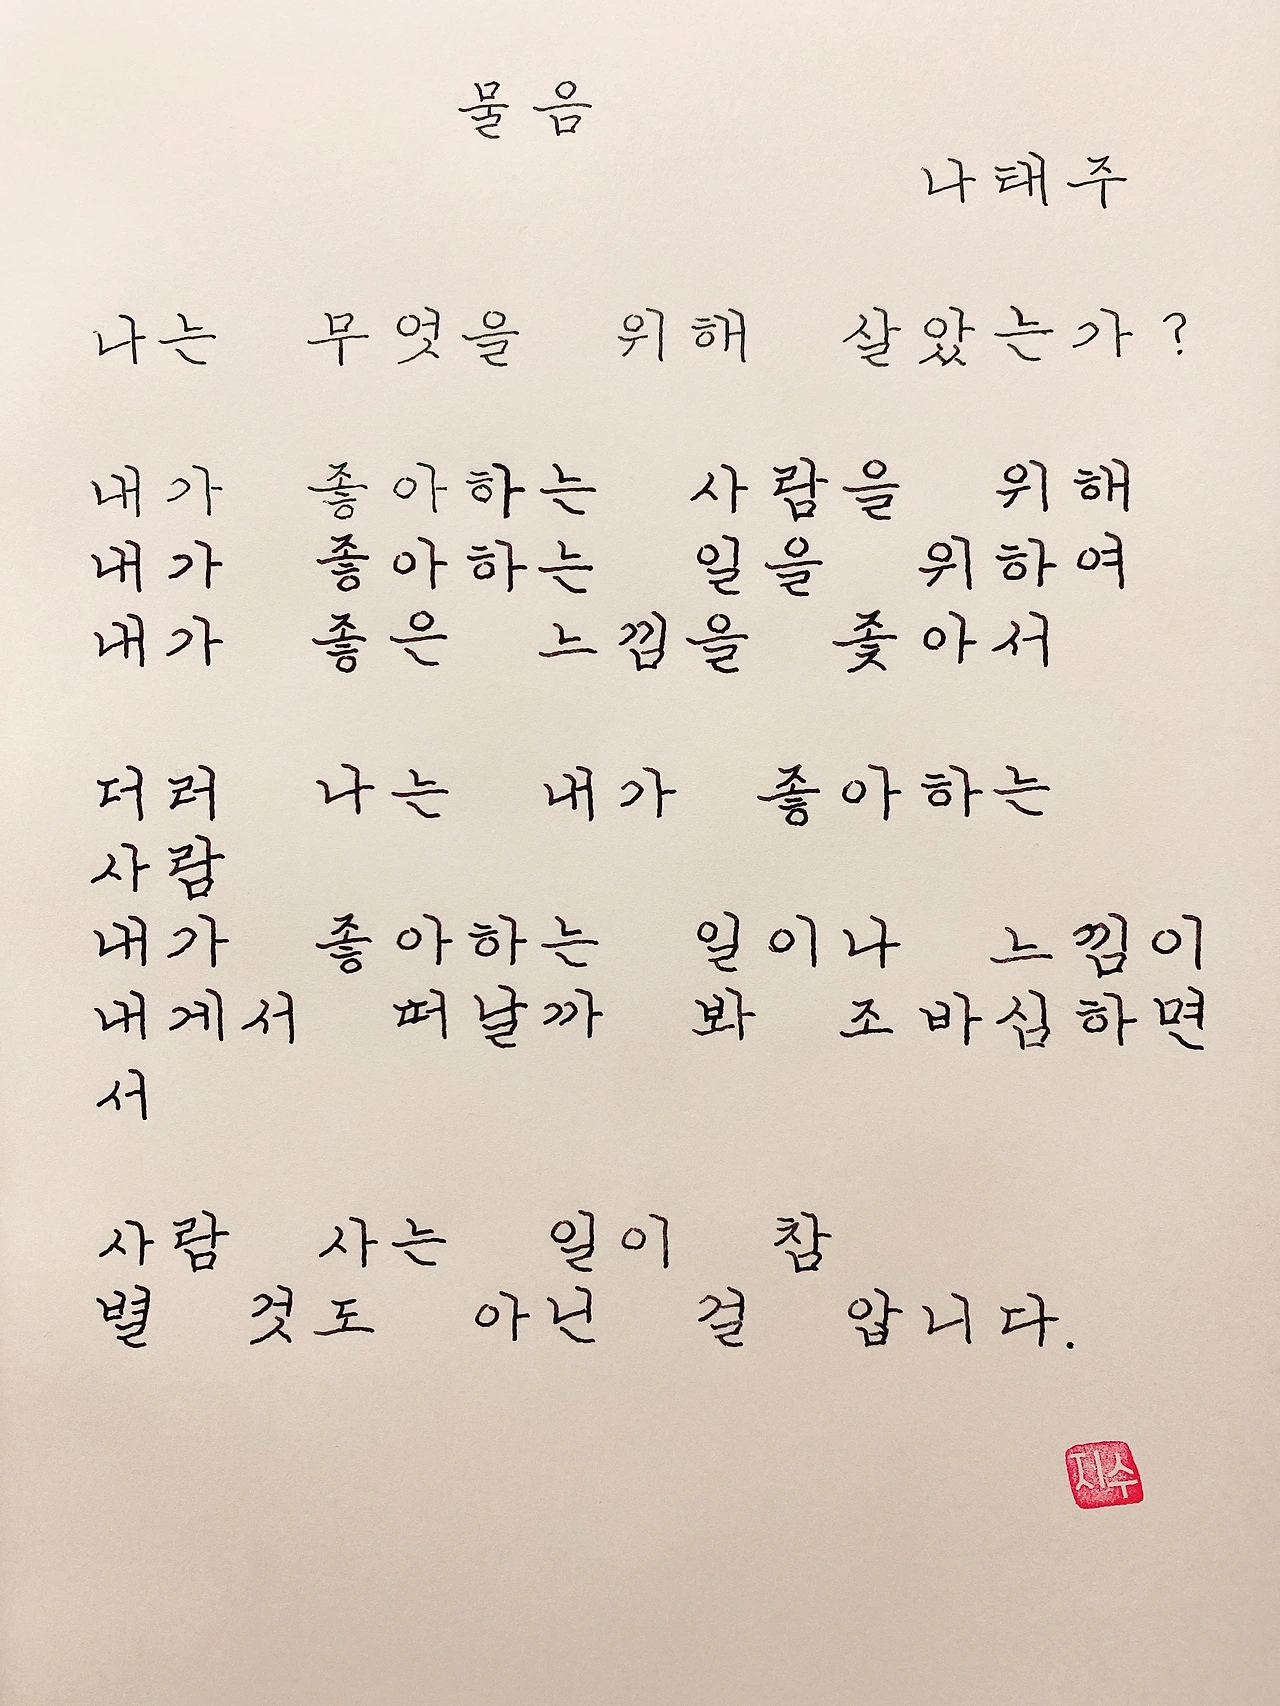 물음
나태주
나는 무엇을 위해 살았는가?
내가 좋아하는 사람을 위해
내가 좋아하는 일을 위하여
내가 좋은 느낌을 좇아서
더러 나는 내가 좋아하는
사람
내가 좋아하는 일이나 느낌이
내게서 떠날까 봐 조바심하면
서
사람 사는 일이 참
별 것도 아닌 걸 압니다.
지수